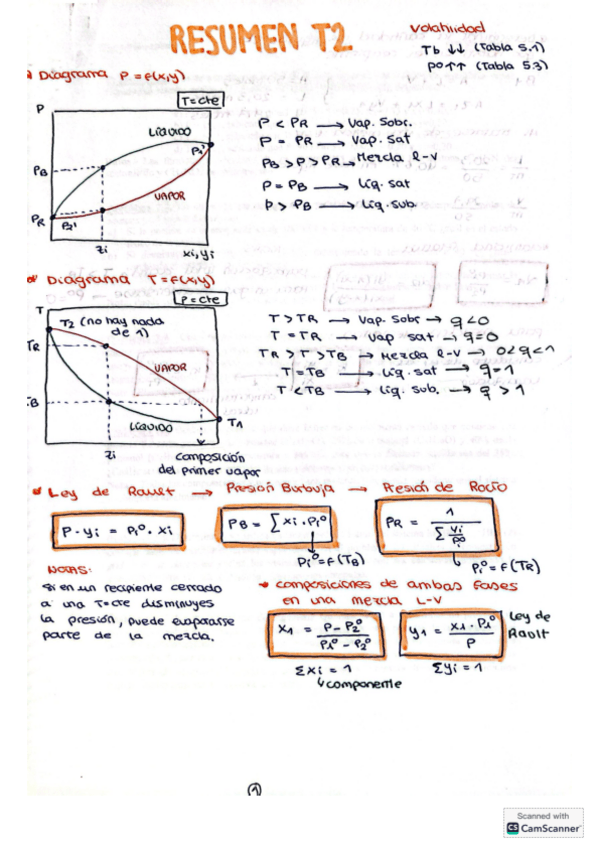 RESUMEN T2
Volatilidad
Tb ↓↓ (Tabla 5.1)
Pº↑↑ (Tabla 5.3)
Diagrama P = f(x,y)
T = cte
P
LÍQUIDO
P1º
PB
VAPOR
PR
P2º
zi
xi, yi
P < PR → Vap. Sobc.
P = PR → Vap. Sat
PB > P > PR → Mezcla l-v
P = PB → Líq. sat
P > PB → Líq. sub.
Diagrama T = f(x,y)
P = cte
T
T2 (no hay nada de 1)
TR
VAPOR
TB
LÍQUIDO
T1
zi
composición
del primer vapor
T > TR → Vap. Sobc → q<0
T = TR → Vap sat → q=0
TR > T > TB → Mezcla l-v → 0<q<1
T = TB → Líq. sat → q=1
T < TB → Líq. Sub. → q > 1
Ley de Rault → Presión Burbuja → Presión de Rocío
P · yi = Piº · xi
PB = ∑ xi · Piº
PR = 1 / ∑ yi/Piº
Piº = f(TB)
Piº = f(TR)
NOTAS:
Si en un recipiente cerrado
a una T=cte disminuyes
la presión, puede evaporarse
parte de la mezcla.
composiciones de ambas fases
en una mezcla L-V
x1 = P - P2º / P1º - P2º
y1 = x1 · P1º / P
Ley de
Rault
∑xi = 1
↳componente
∑yi = 1
1
Scanned with
CS CamScanner